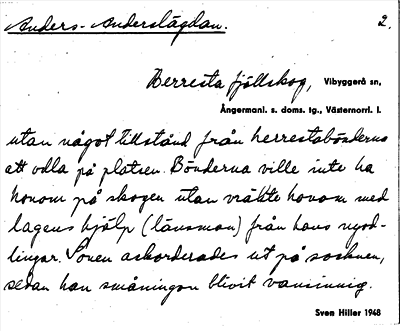 Anders-Anderslägdan. 2.
Herresta fjällskog, Vibyggerå sn,
Ångermanl. s. doms. tg., Västernorrl. l.
utan något tillstånd från herrestabönderna
att odla på platsen. Bönderna ville inte ha
honom på skogen utan vräkte honom med
lagens hjälp (länsman) från hans nyod-
lingar. Sonen ackorderades ut på socknen,
sedan han småningom blivit vansinnig.
Sven Hiller 1948